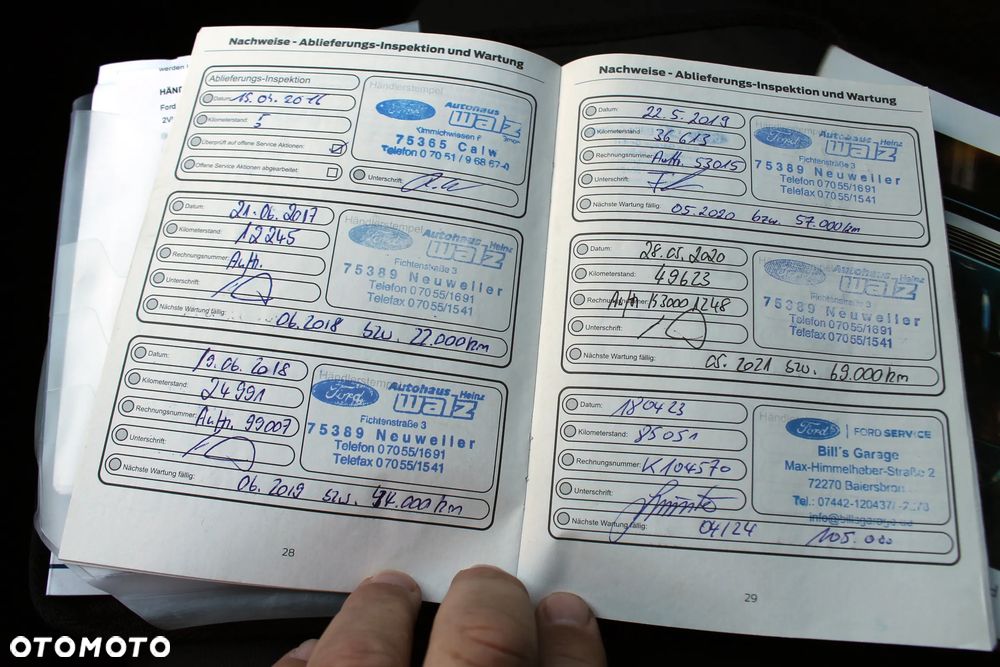 werden
HÄND
Ford
2V
Nachweise - Ablieferungs-Inspektion und Wartung
Ablieferungs-Inspektion
Händlerstempel
Datum: 15.04.2016
Kilometerstand: 5
Überprüft auf offene Service Aktionen:
Offene Service Aktionen abgearbeitet:
Unterschrift:
Ford
Autohaus
walz
GmbH
Kimmichwiesen
75365 Calw
Telefon 0 70 51 / 9 68 67-0
Datum: 21.06.2017
Kilometerstand: 12245
Rechnungsnummer: Auftr.
Unterschrift:
Nächste Wartung fällig: 06.2018 bzw. 22.000km
Händlerstempel
Ford
Autohaus
Heinz
walz
Fichtenstraße 3
75389 Neuweiler
Telefon 0 70 55/1691
Telefax 0 70 55/1541
Datum: 19.06.2018
Kilometerstand: 24991
Rechnungsnummer: Auftr. 99007
Unterschrift:
Nächste Wartung fällig: 06.2019 bzw. 44.000km
Händlerstempel
Ford
Autohaus
Heinz
walz
Fichtenstraße 3
75389 Neuweiler
Telefon 0 70 55/1691
Telefax 0 70 55/1541
28
Nachweise - Ablieferungs-Inspektion und Wartung
Datum: 22.5.2019
Kilometerstand: 36613
Rechnungsnummer: Auftr. 53015
Unterschrift:
Nächste Wartung fällig: 05.2020 bzw. 57.000km
Ford
Autohaus
Heinz
walz
Fichtenstraße 3
75389 Neuweiler
Telefon 0 70 55/1691
Telefax 0 70 55/1541
Datum: 28.05.2020
Kilometerstand: 49623
Rechnungsnummer: Auftr. K3000 1248
Unterschrift:
Nächste Wartung fällig: 05.2021 bzw. 69.000km
Ford
Autohaus
Heinz
walz
Fichtenstraße 3
75389 Neuweiler
Telefon 0 70 55/1691
Telefax 0 70 55/1541
Datum: 180423
Kilometerstand: 85051
Rechnungsnummer: K104570
Unterschrift:
Nächste Wartung fällig: 04/24 105.000
Ford
FORD SERVICE
Bill's Garage
Max-Himmelheber-Straße 2
72270 Baiersbronn
Tel.: 07442-120437
29
OTOMOTO